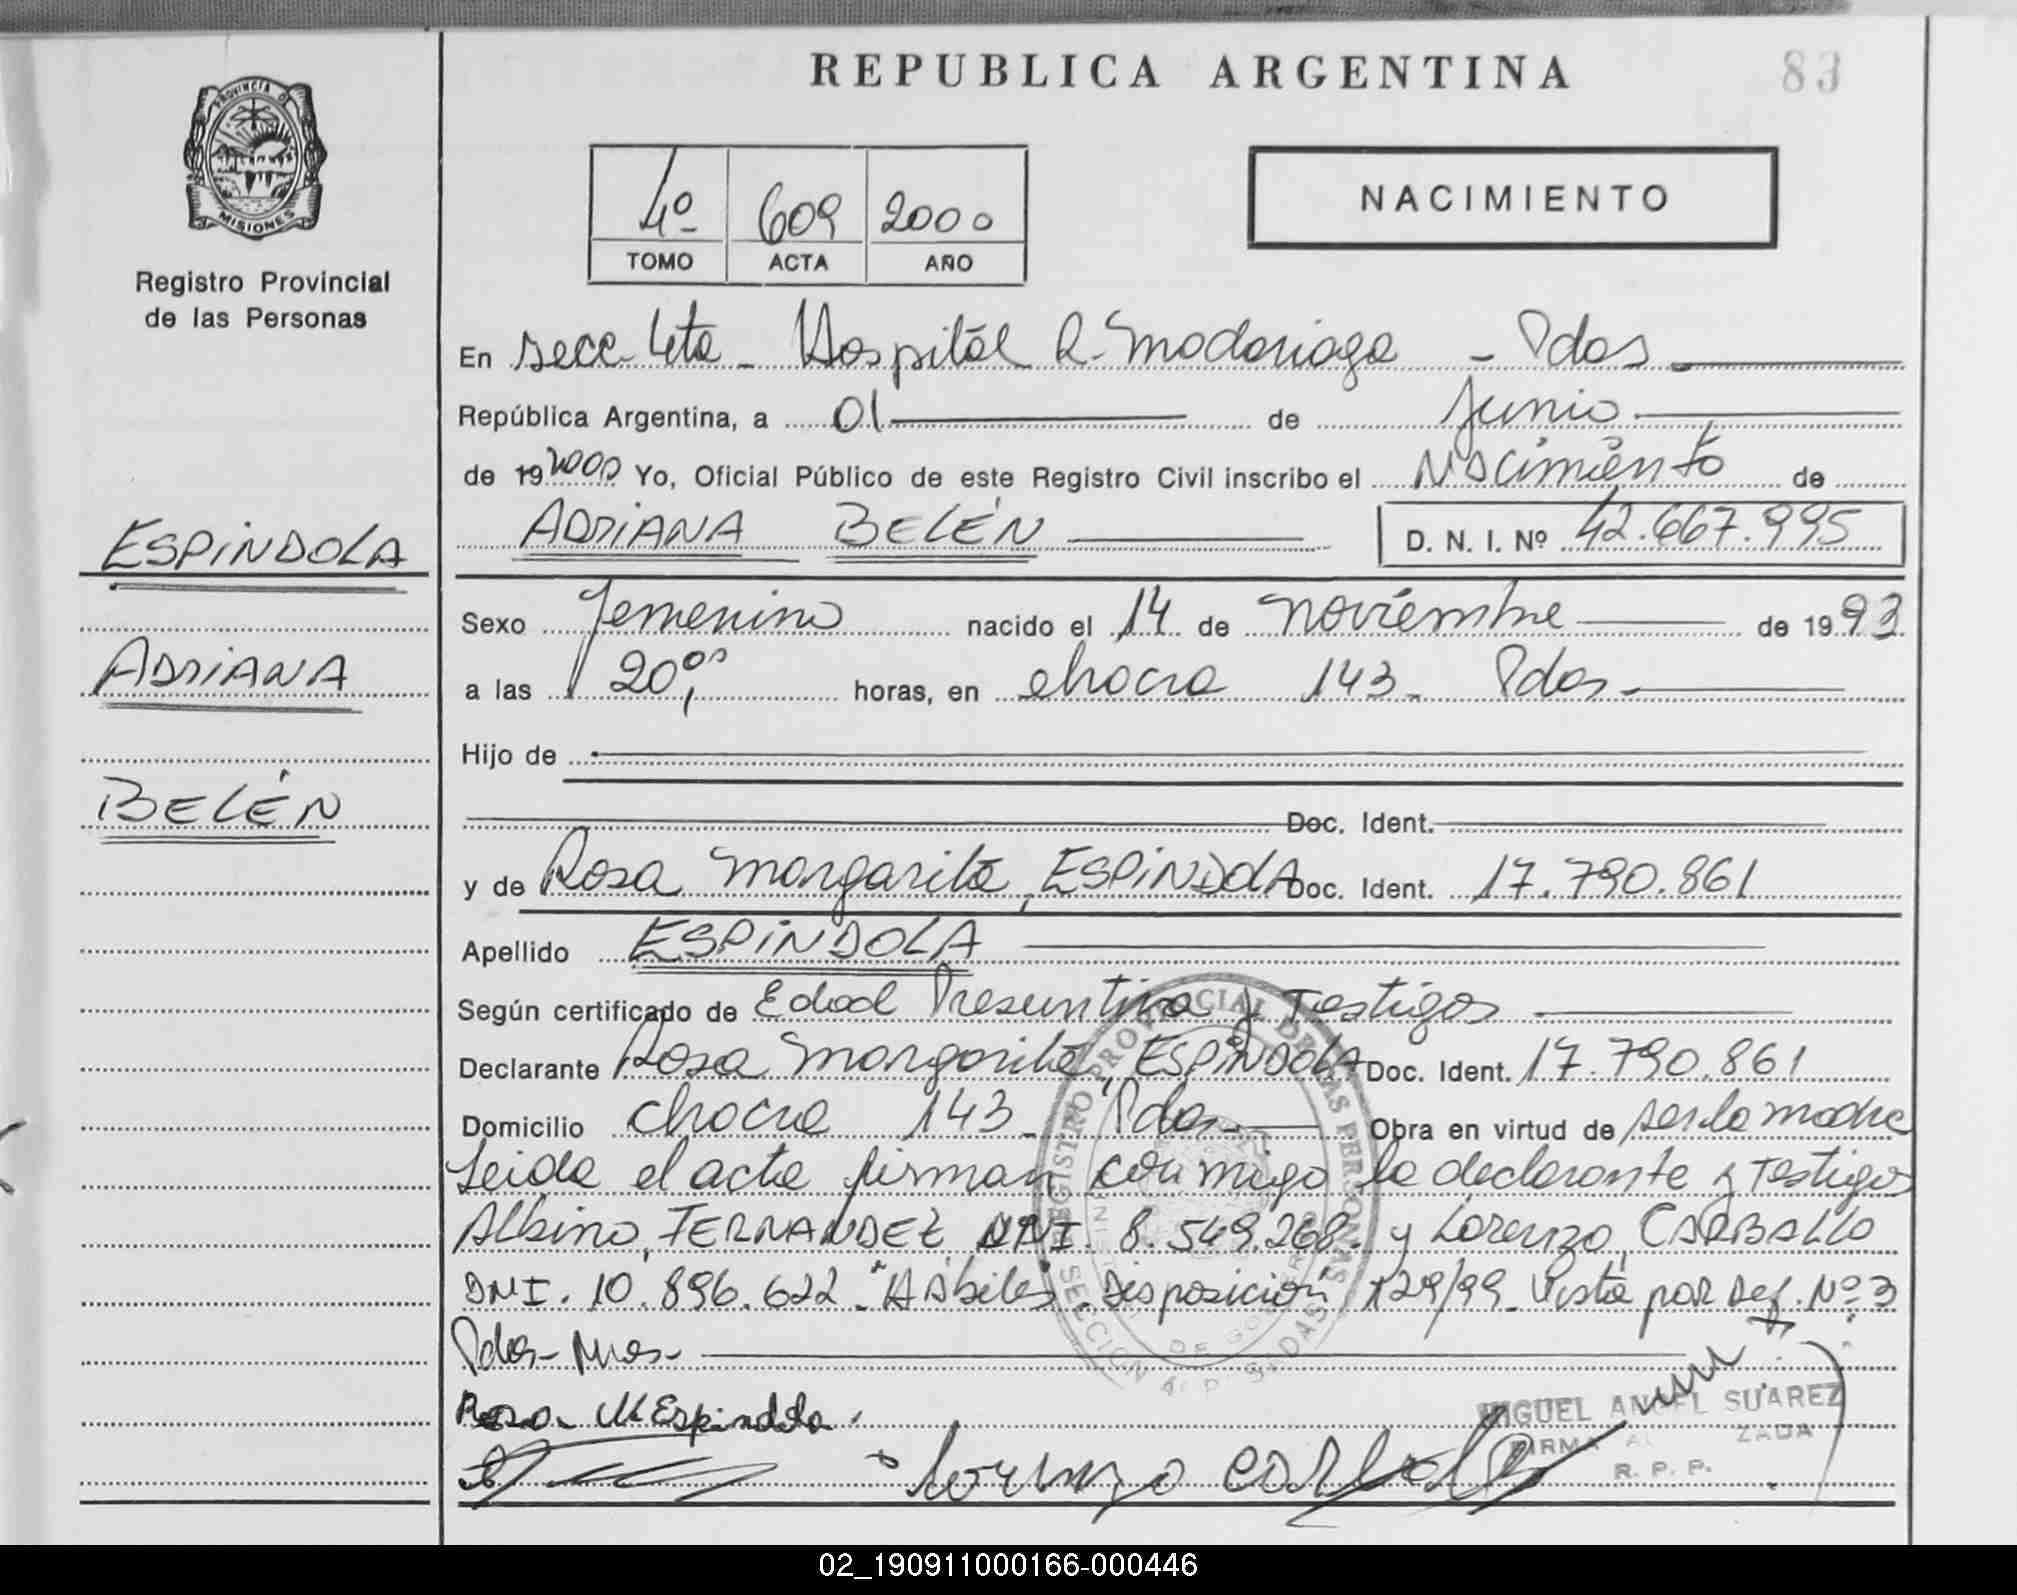 REPUBLICA ARGENTINA
83
PROVINCIA DE
MISIONES
Registro Provincial
de las Personas
4º 609 2000
TOMO ACTA AÑO
NACIMIENTO
En secc. 4ta - Hospital R. Madariaga - Pdas
República Argentina, a 01 de Junio
de 19 2000 Yo, Oficial Público de este Registro Civil inscribo el Nacimiento de
ADRIANA BELÉN D. N. I. Nº 42.667.995
ESPINDOLA
ADRIANA
BELÉN
Sexo femenino nacido el 14 de noviembre de 1993
a las 20,00 horas, en chacra 143 - Pdas -
Hijo de
Doc. Ident.
y de Rosa Margarita, ESPINDOLA Doc. Ident. 17.790.861
Apellido ESPINDOLA
Según certificado de Edad Presuntiva y Testigos
Declarante Rosa Margarita, ESPINDOLA Doc. Ident. 17.790.861
Domicilio chacra 143 - Pdas - Obra en virtud de ser la madre
Leida el acta firman conmigo la declarante y Testigos
Albino, FERNANDEZ DNI. 8.549.268. y Lorenzo, CARBALLO
DNI. 10.896.622. "Hábiles. Disposición 129/99. Vista por Def. Nº 3
Pdas - Mnes -
Rosa M Espindola.
Lorenzo Carballo
REGISTRO PROVINCIAL DE LAS PERSONAS
MIGUEL ANGEL SUAREZ
FIRMA
R. P. P.
02_190911000166-000446